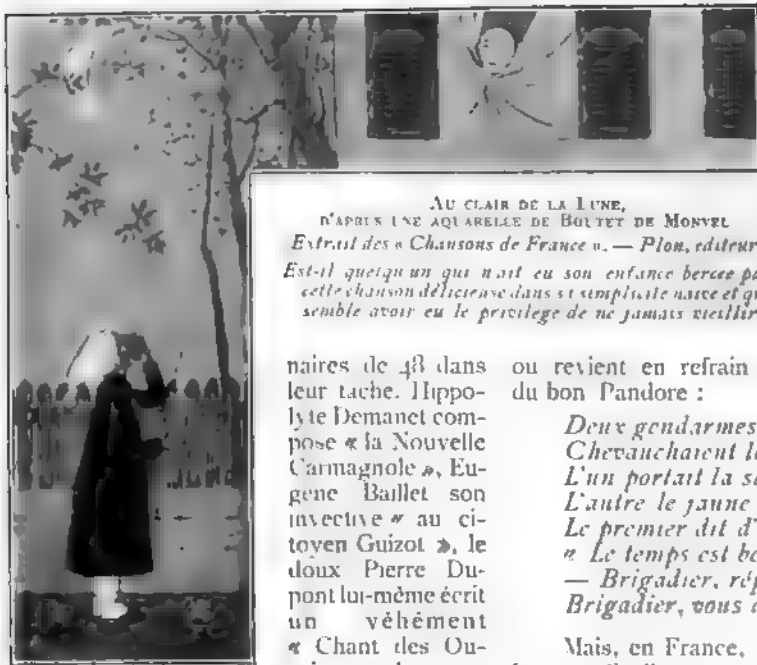 AU CLAIR DE LA LUNE,
D'APRÈS UNE AQUARELLE DE BOUTET DE MONVEL
Extrait des « Chansons de France ». — Plon, éditeur
Est-il quelqu'un qui n'ait eu son enfance bercée
cette chanson délicieuse dans sa simplicité naïve et
semble avoir eu le privilège de ne jamais vieillir
naires de 48 dans
leur tâche. Hippo-
lyte Demanet com-
pose « la Nouvelle
Carmagnole », Eu-
gène Baillet son
invective « au ci-
toyen Guizot », le
doux Pierre Du-
pont lui-même écrit
un véhément
« Chant des Ou-
ou revient en refrain
du bon Pandore :
Deux gendarmes
Chevauchaient
L'un portait la
L'autre le jaune
Le premier dit
« Le temps est
— Brigadier,
Brigadier, vous
Mais, en France,